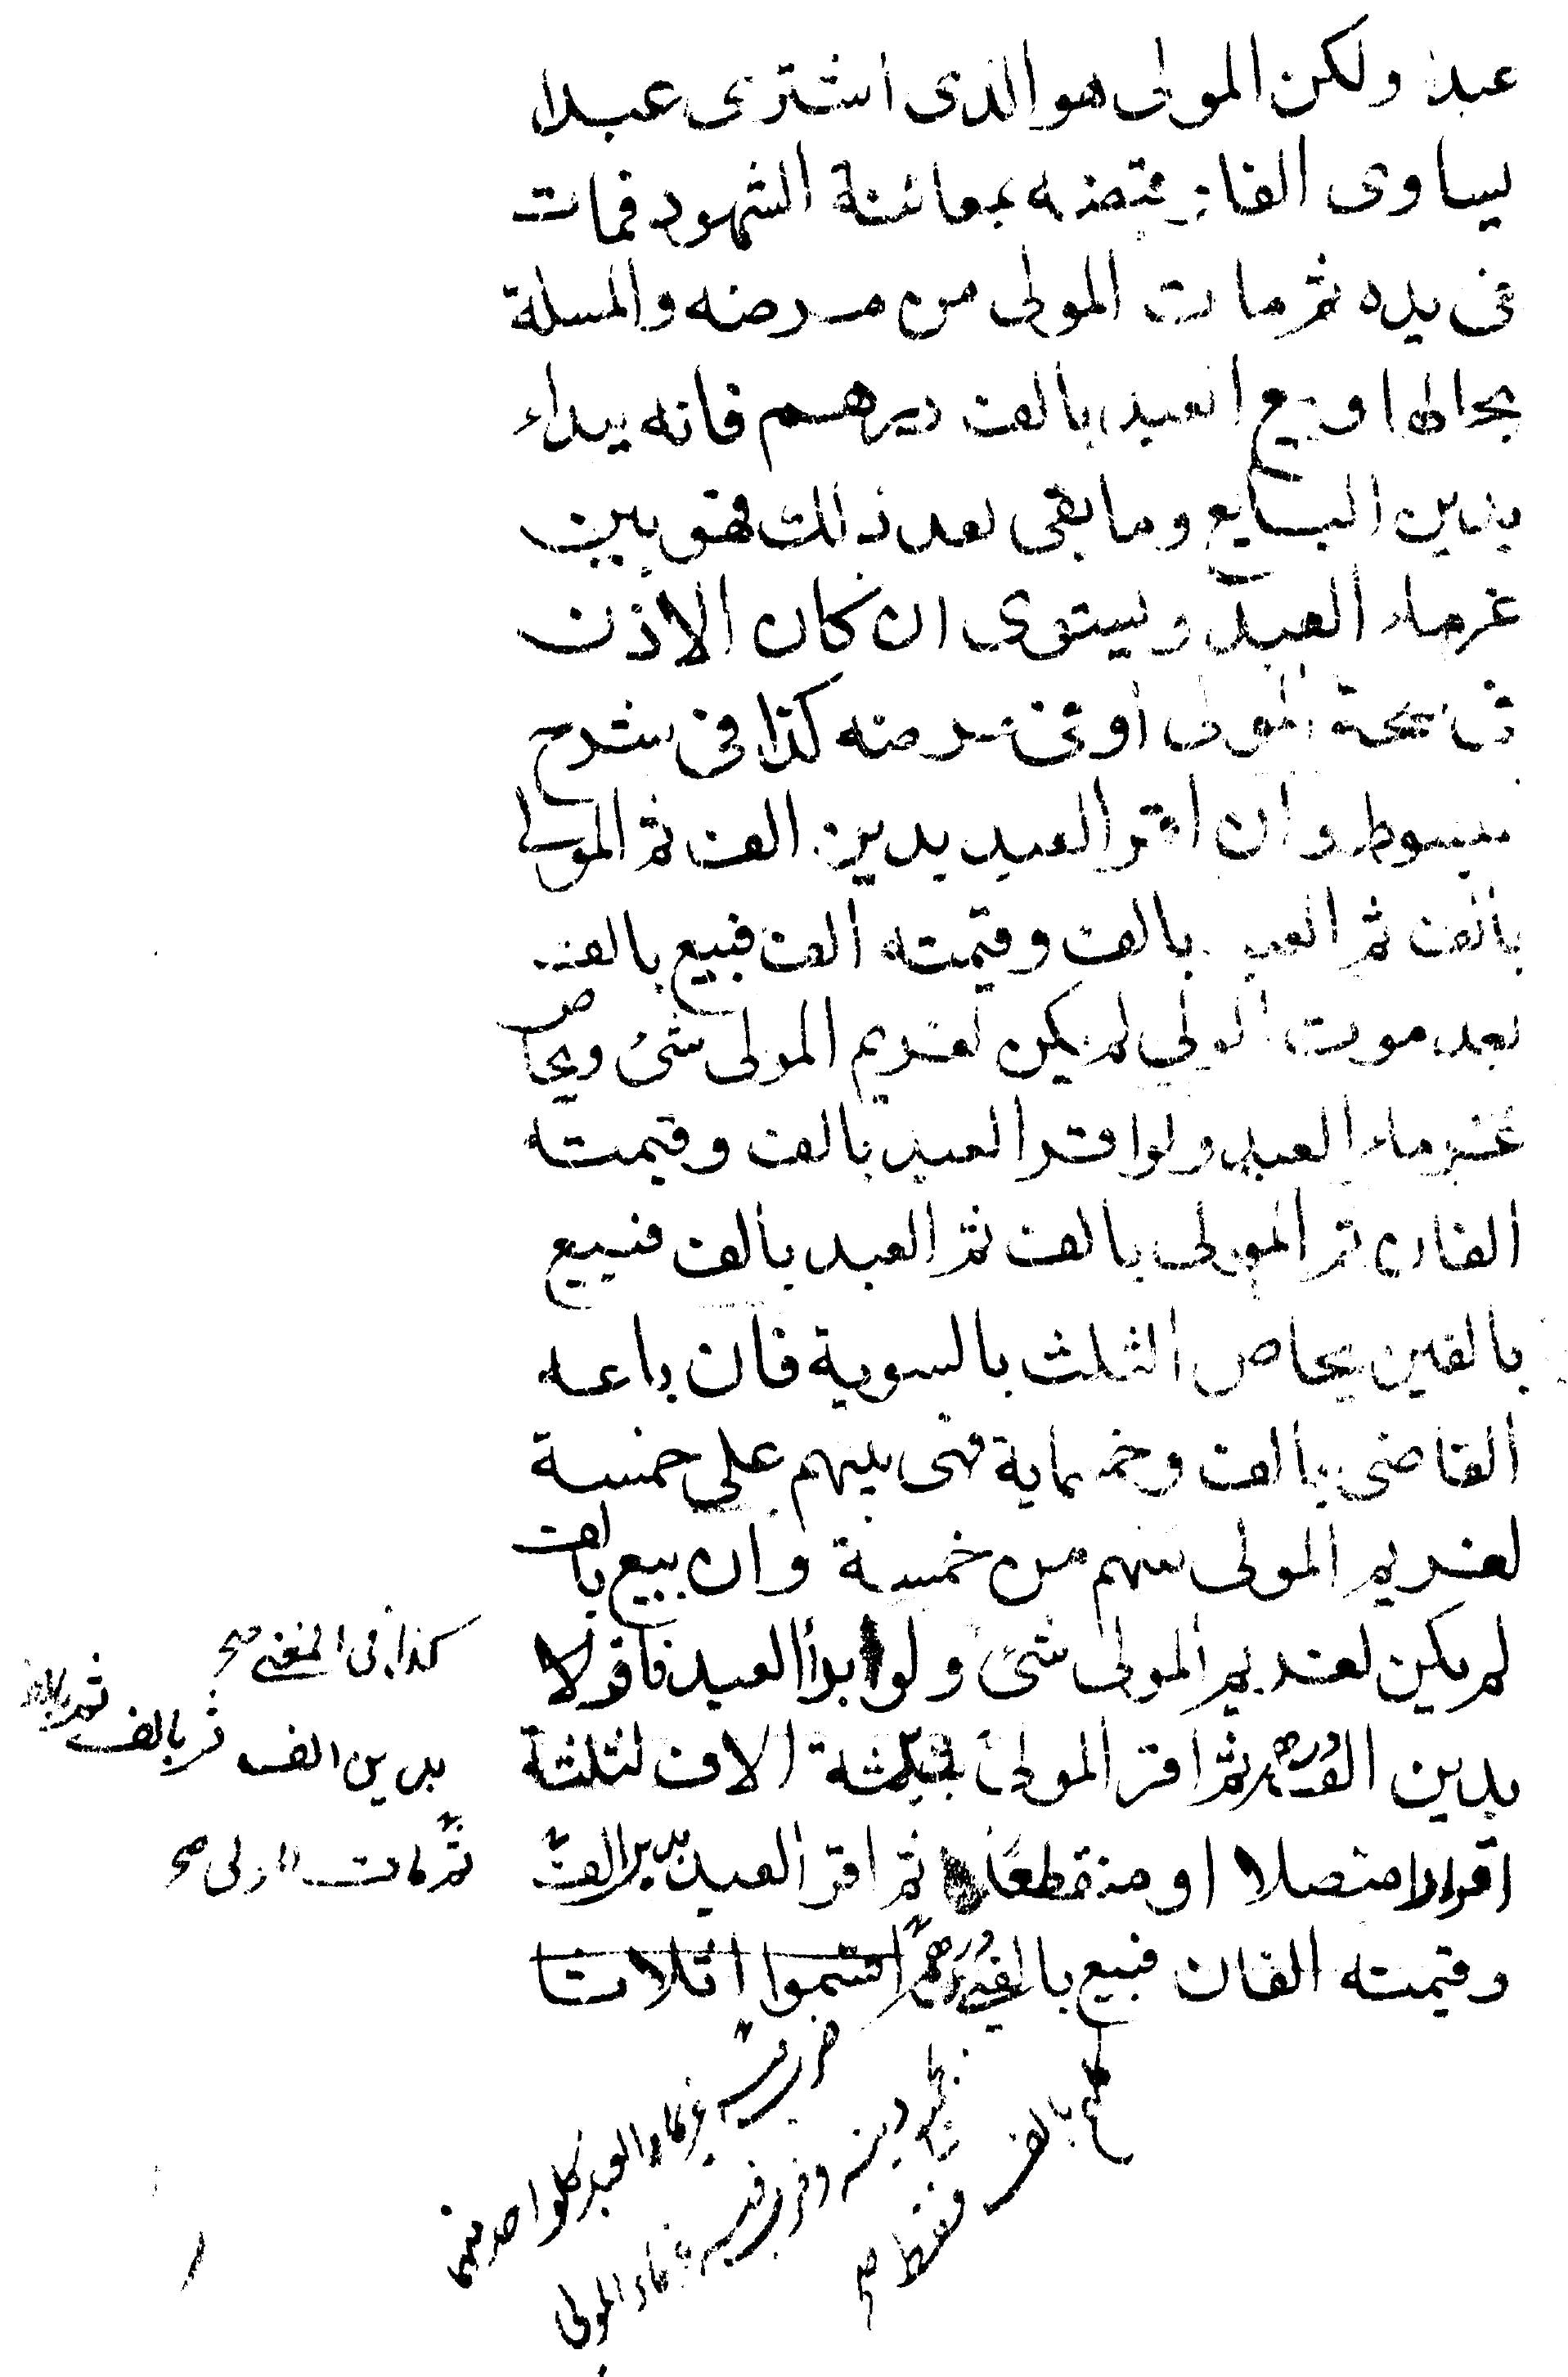 عبدا ولكن المولى هو الذى اشترى عبدا
يساوى الفا فقبضه بمعائنة الشهود فمات
فى يده ثم مات المولى من مرضه والمسلة
بحالها وبيع العبد بالف درهم فانه يبداء
بدين البايع وما بقى بعد ذلك فهو بين
غرماء العبد ويستوى ان كان الاذن
فى صحة المولى او فى مرضه كذا فى شرح
مبسوط وان اقر العبد بدين الف ثم المولى
بالف ثم العبد بالف وقيمته الف فبيع بالف
بعد موت المولى لم يكن لغريم المولى شئ ويحاص
غرماء العبد ولو اقر العبد بالف وقيمته
الفان ثم المولى بالف ثم العبد بالف فبيع
بالفين يحاص الثلث بالسوية فان باعه
القاضى بالف وخمسماية فهى بينهم على خمسة
لغريم المولى سهم من خمسة وان بيع بالف
لم يكن لغريم المولى شئ ولو ابرأ العبد فاقر لا
كذا فى المغنى صح
بدين الف درهم ثم اقر المولى بثلثة الاف لثلثة
بدين الف ثم بالف ثم بالف
اقرارا متصلا او منقطعا ثم اقر العبد بدين الف
ثم مات المولى صح
وقيمته الفان فبيع بالفى درهم اقتسموا اثلاثا
ضرب فيه غرماء العبد كل واحد منهما
بجميع دينه وضرب فيه غرماء المولى
بالف فقط صح